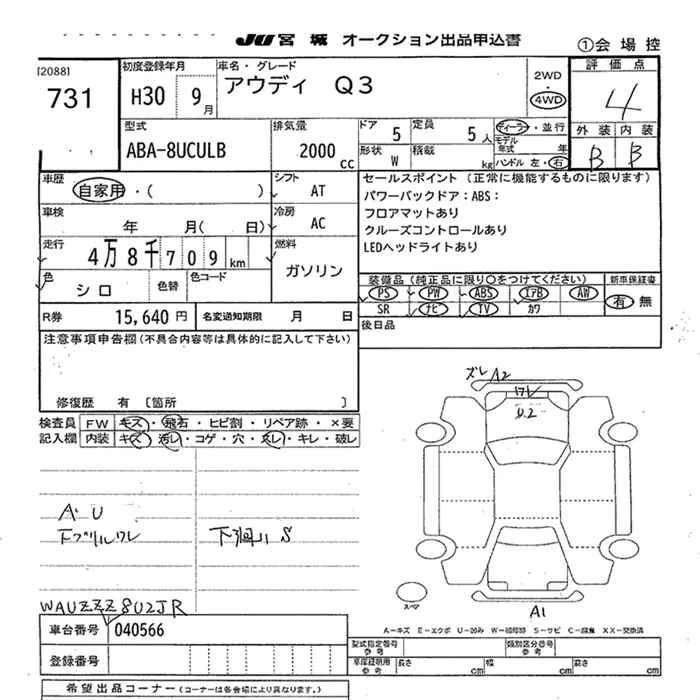 JU 宮城 オークション出品申込書
①会場控
[2088]
731
初度登録年月
H30 9月
車名・グレード
アウディ Q3
2WD
4WD
評価点
4
外装 内装
B B
型式
ABA-8UCULB
排気量
2000 cc
ドア 5
定員 5人
ディーラー・並行
モデル年式 年
形状 W
積載 kg
ハンドル 左・右
車歴
自家用・( )
シフト
AT
車検
年 月( 日)
冷房
AC
走行
4万8千709km
燃料
ガソリン
色
シロ
色替
色コード
R券
15,640円
名変通知期限 月 日
セールスポイント (正常に機能するものに限ります)
パワーバックドア:ABS:
フロアマットあり
クルーズコントロールあり
LEDヘッドライトあり
装備品 (純正品に限り○をつけてください)
新車保証書
PS PW ABS エアB AW
SR ナビ TV カワ
有 無
後日品
注意事項申告欄(不具合内容等は具体的に記入して下さい)
修復歴 有 [箇所 ]
検査員記入欄
FW キズ・飛石・ヒビ割・リペア跡・×要
内装 キズ・汚レ・コゲ・穴・スレ・キレ・破レ
ズレ A2
ワレ
U.2
A・U
下グリルワレ
下廻り S
スペア
A1
WAUZZZ8U2JR
車台番号 040566
登録番号
A-キズ E-エクボ U-凹み W-補修跡 S-サビ C-腐食 XX-交換済
型式指定番号 参考
類別区分番号 参考
車庫証明用 参考
長さ cm
幅 cm
高さ cm
希望出品コーナー (コーナーは各会場により異なります。)